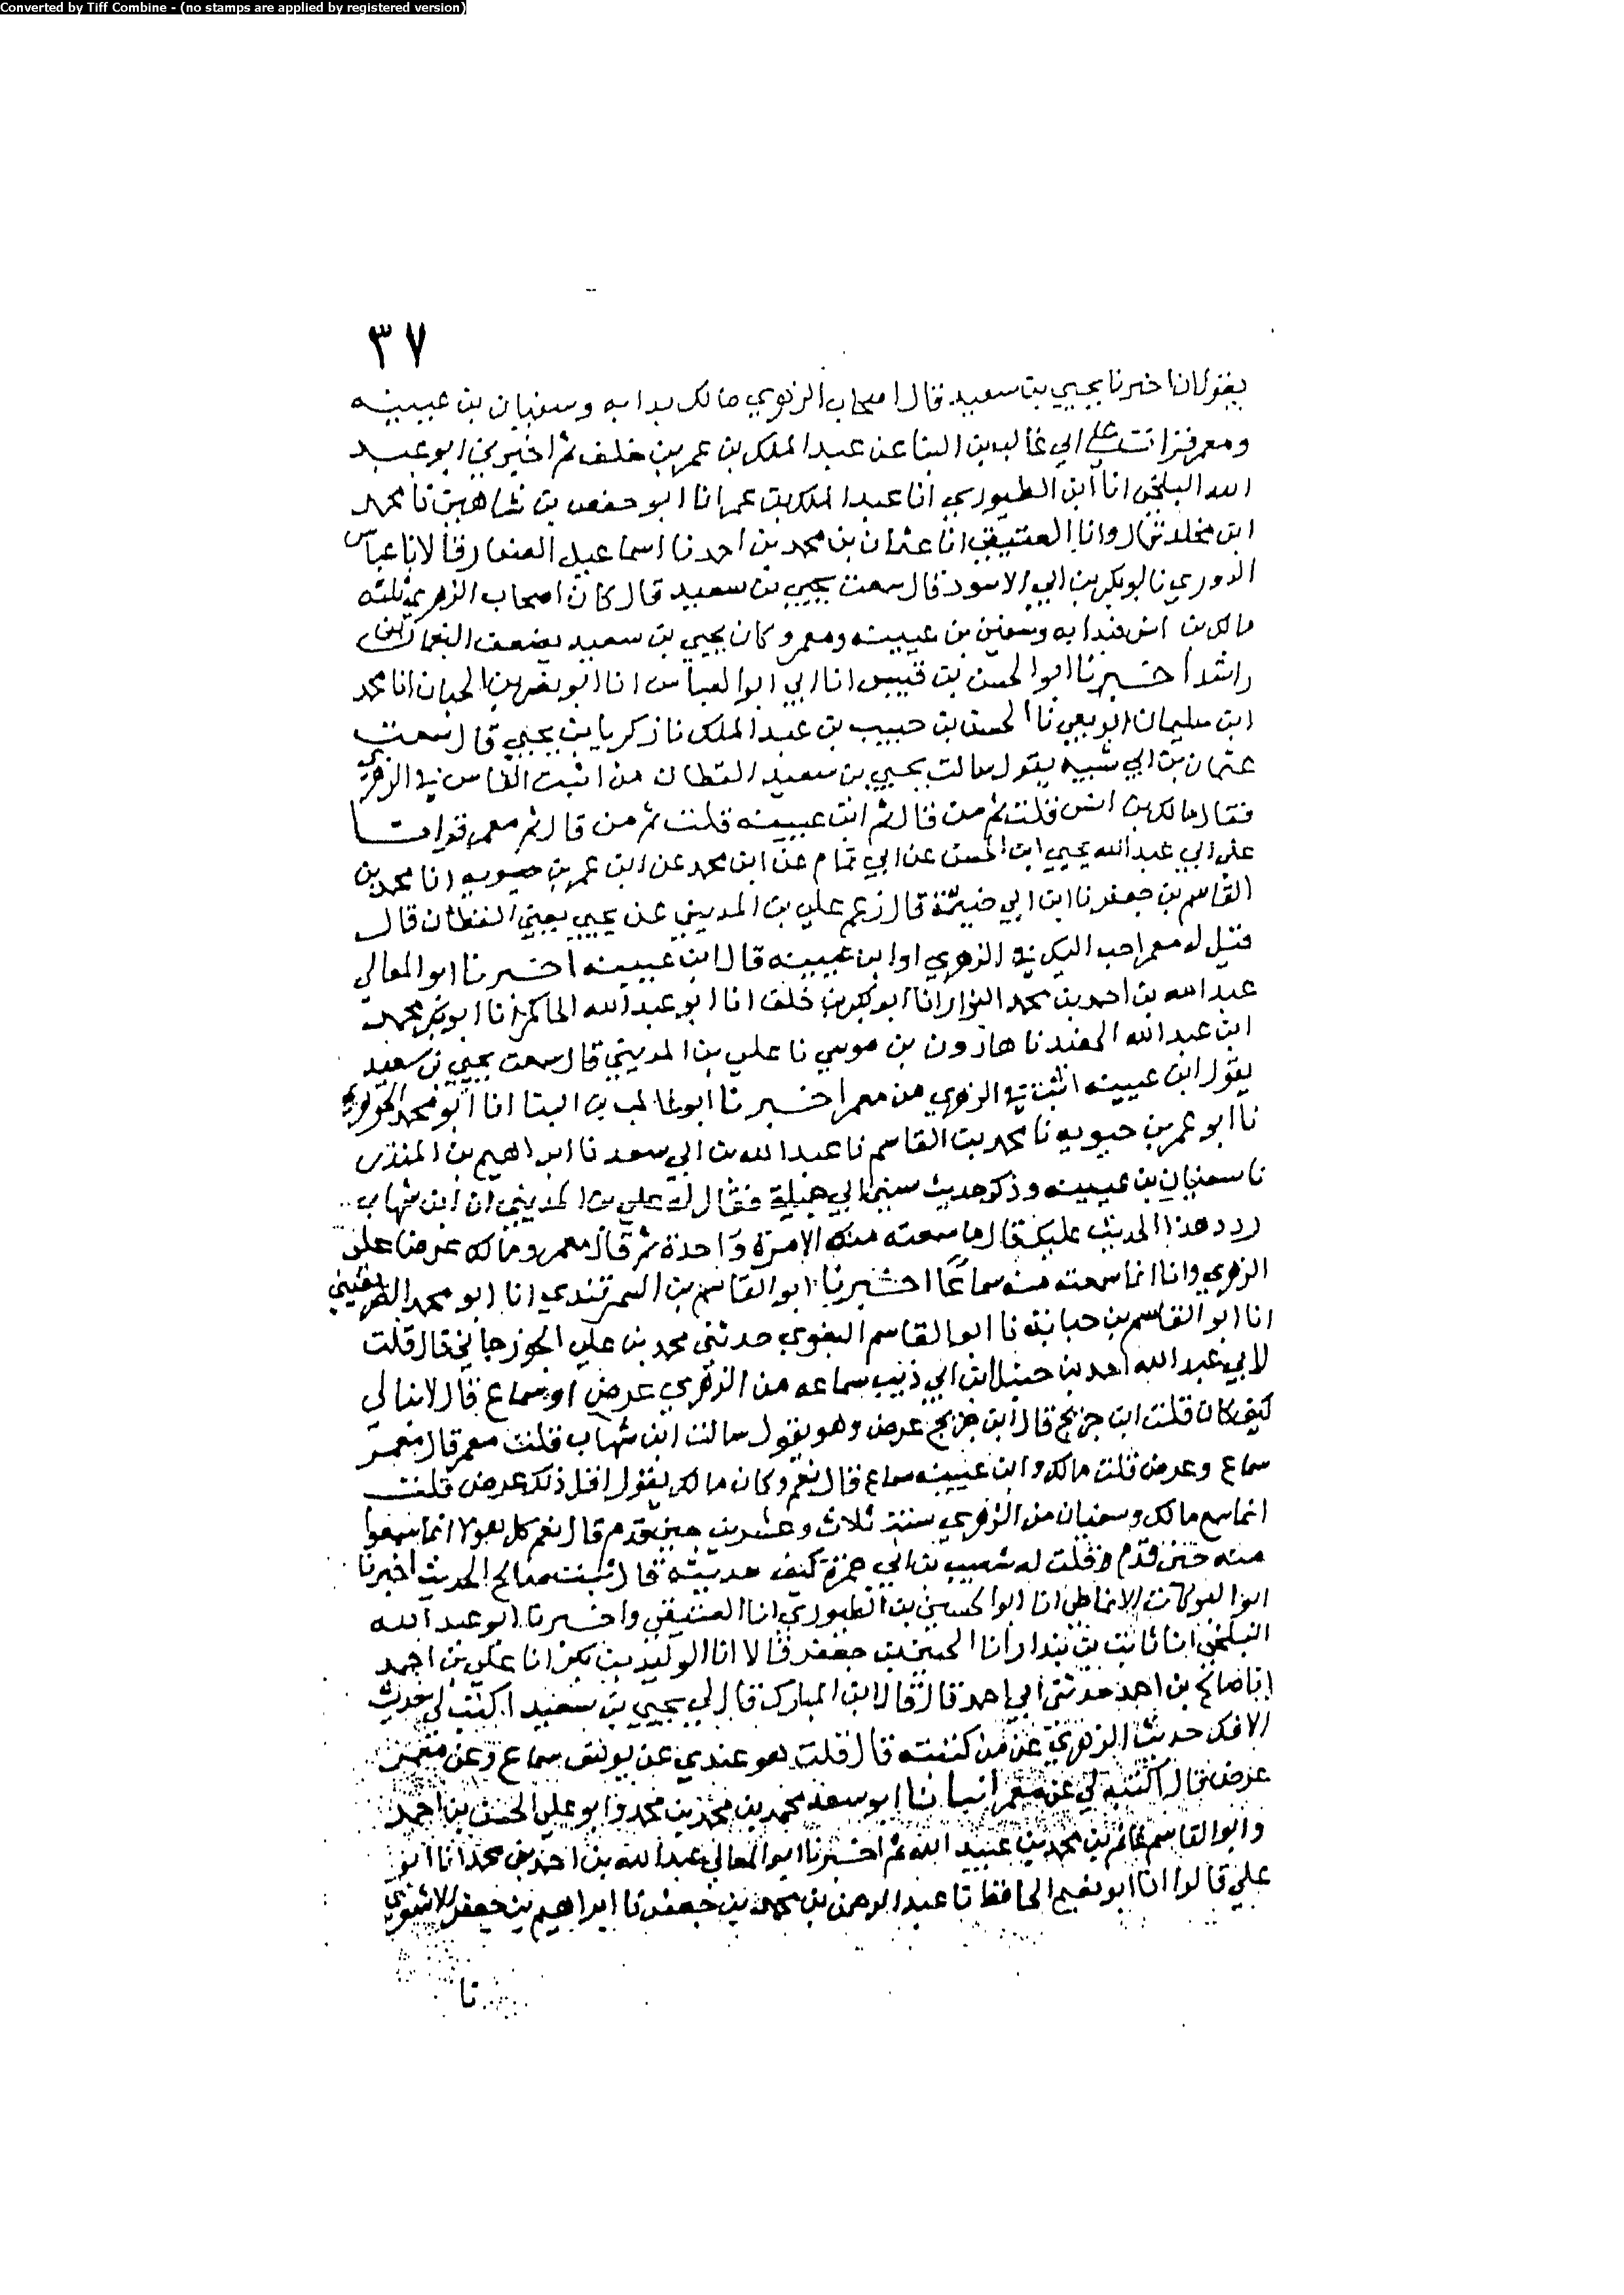 Converted by Tiff Combine - (no stamps are applied by registered version)
٣٧
يقول انا اخبرنا يحيي بن سعيد قال اصحاب الزهري مالك بدا به وسفيان بن عيينه
ومعمر قرات علي ابي غالب بن البنا عن عبد الملك بن عمر بن خلف ثم اخبرني ابو عبد
الله البلخي انا ابن الطيوري انا عبد الملك بن عمر انا ابو حفص بن شاهين نا محمد
ابن مخلد وانا العتيقي انا عثمان بن محمد بن احمد نا اسماعيل الصفار قالا نا عباس
الدوري نا ابو بكر بن ابي الاسود قال سمعت يحيي بن سعيد قال كان اصحاب الزهري ثلثه
مالك بن انس فبدا به وسفين بن عيينه ومعمر وكان يحيي بن سعيد يضعف النعمان بن
راشد اخبرنا ابو الحسن بن قبيس انا ابي ابو العباس انا ابو نصر بن الجبان انا محمد
ابن سليمان الربعي نا الحسن بن حبيب بن عبد الملك نا زكريا بن يحيي قال سمعت
عثمان بن ابي شيبه يقول سالت يحيي بن سعيد القطان من اثبت الناس في الزهري
فقال مالك بن انس قلت ثم من قال ثم ابن عيينه قلت ثم من قال ثم معمر قرات
علي ابي عبد الله يحيي ابن الحسن عن ابي تمام عن ابن محمد عن ابن عمر بن حيويه انا محمد بن
القاسم بن جعفر نا ابن ابي خيثمة قال زعم علي بن المديني عن يحيي يعني القطان قال
قيل له معمر احب اليك في الزهري او ابن عيينه قال ابن عيينه اخبرنا ابو المعالي
عبد الله بن احمد بن محمد البزار انا ابو بكر بن خلف انا ابو عبد الله الحاكم انا ابو بكر محمد
ابن عبد الله الحفيد نا هارون بن موسي نا علي بن المديني قال سمعت يحيي بن سعيد
يقول ابن عيينه اثبت في الزهري من معمر اخبرنا ابو غالب بن البنا انا ابو محمد الجوهري
نا ابو عمر بن حيويه نا محمد بن القاسم نا عبد الله بن ابي سعد نا ابراهيم بن المنذر
نا سفيان بن عيينه وذكر حديث سنين ابي جميلة فقال له علي بن المديني ان ابن شهاب
ردد هذا الحديث عليك قال ما سمعته منه الا مرة واحدة ثم قال معمر ومالك عرضا علي
الزهري وانا انما سمعته منه سماعا اخبرنا ابو القاسم بن السمرقندي انا ابو محمد الصريفيني
انا ابو القاسم بن حبابة نا ابو القاسم البغوي حدثني محمد بن علي الجوزجاني قال قلت
لابي عبد الله احمد بن حنبل ابن ابي ذئب سماعه من الزهري عرض او سماع قال لا يبالي
كيف كان قلت ابن جريج قال ابن جريج عرض وهو يقول سالت ابن شهاب قلت معمر قال معمر
سماع وعرض قلت مالك وابن عيينه سماع قال نعم وكان مالك يقول اقل ذلك عرض قلت
انما سمع مالك وسفيان من الزهري سنة ثلاث وعشرين حين قدم قال نعم كل هولا انما سمعوا
منه حين قدم قلت له شعيب بن ابي حمزة كيف حديثه قال ثبت صالح الحديث اخبرنا
ابو البركات الانماطي انا ابو الحسين بن الطيوري انا العتيقي واخبرنا ابو عبد الله
البلخي انا ثابت بن بندار انا الحسين بن جعفر قالا انا الوليد بن بكر انا علي بن احمد
انا صالح بن احمد حدثني ابي احمد قال قال ابن المبارك قال لي يحيي بن سعيد اكتب لي حديث
الافك حديث الزهري عن من كتبته قال قلت هو عندي عن يونس سماع وعن معمر
عرض قال اكتبه لي عن معمر انبانا ابو سعد محمد بن محمد بن محمد وابو علي الحسن بن احمد
وابو القاسم غانم بن محمد بن عبيد الله ثم اخبرنا ابو المعالي عبد الله بن احمد بن محمد انا ابو
علي قالوا انا ابو نعيم الحافظ نا عبد الرحمن بن محمد بن جعفر نا ابراهيم بن جعفر الاشعري
نا